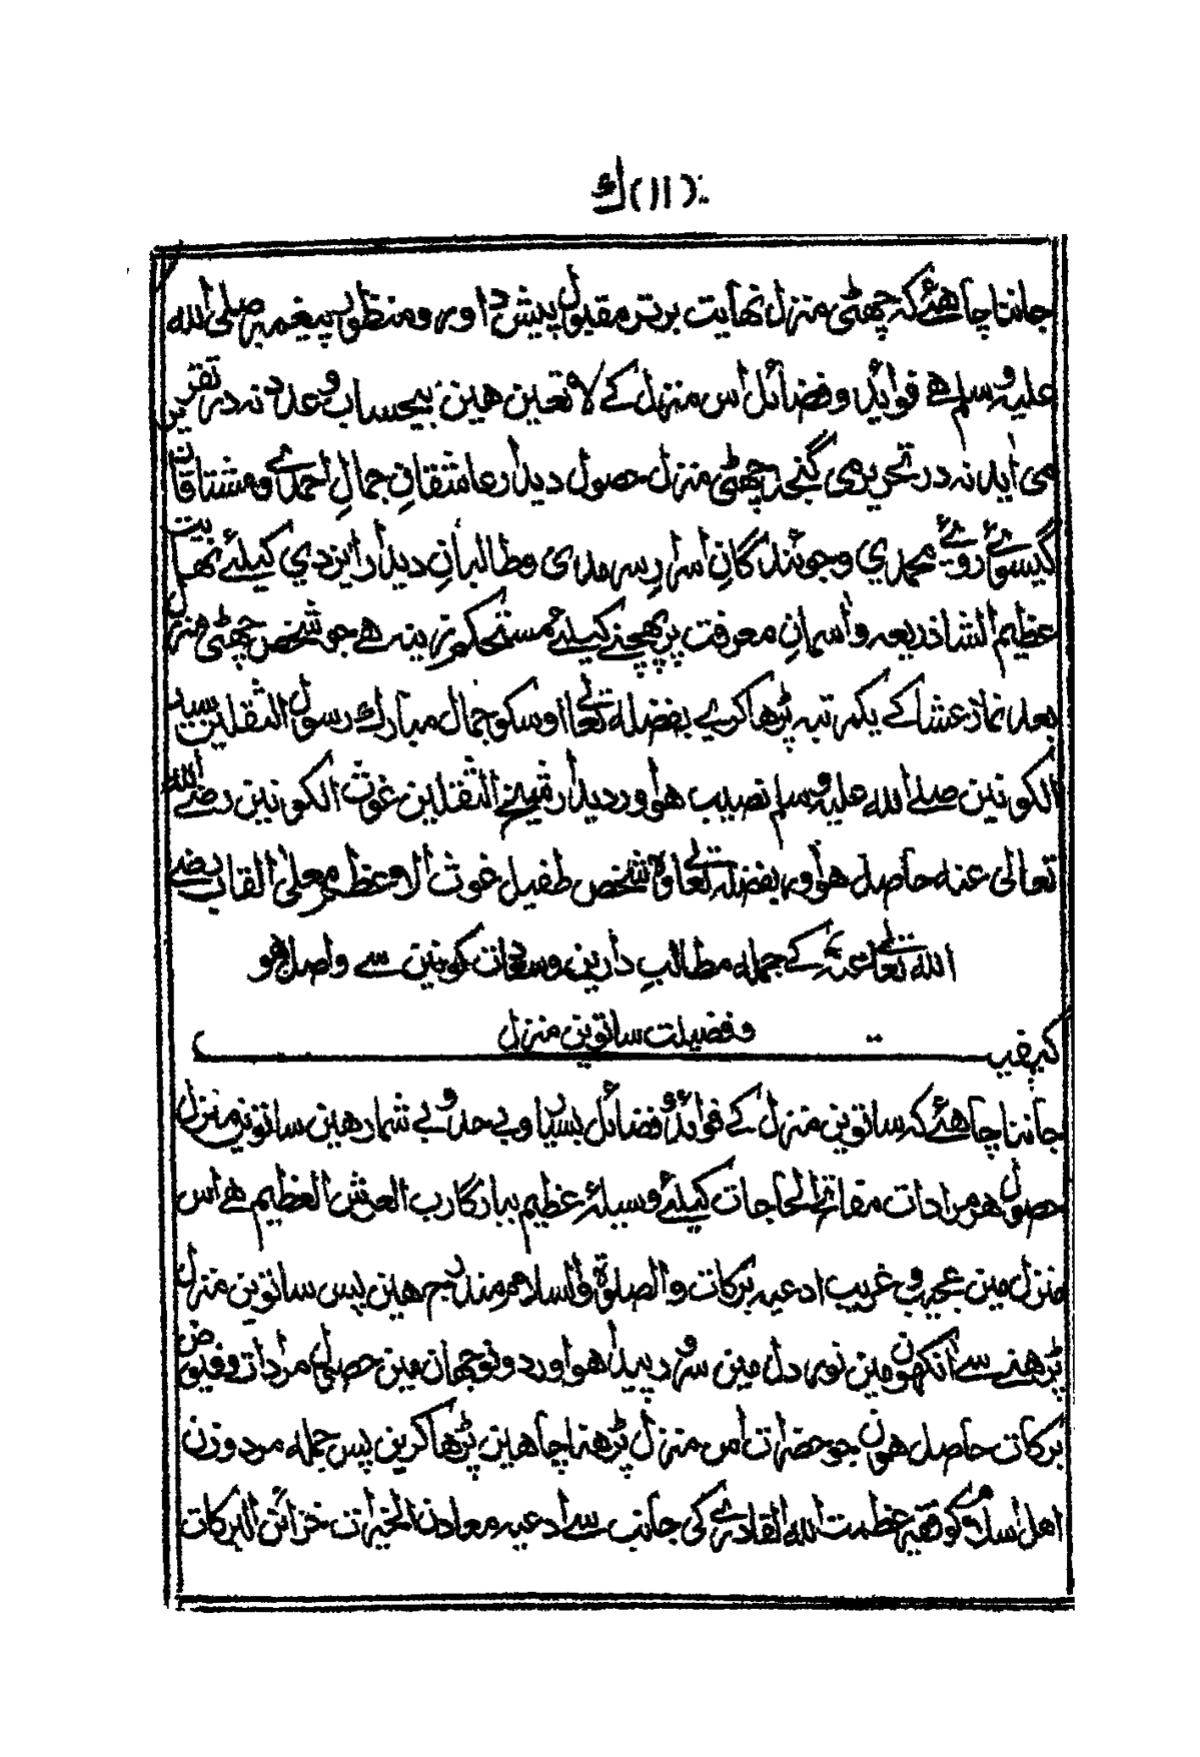 (۱۱) ك
جاننا چاهئے کہ چھٹی منزل نھایت برتر مقبول پیش داور و منظور پیغمبر صلی الله
علیہ وسلم هے فوائد و فضائل اس منزل کے لا تعین هین بیحساب و عدد نہ در تقریر
می آید نہ در تحریر می گنجد چھٹی منزل حصول دیدار عاشقانِ جمالِ احمدے و مشتاقان
گیسوئے روئے محمدي و جوئندگانِ اسرارِ سرمدی و طالبانِ دیدار ایزدي کیلئے نھایت
عظیم الشا ذریعہ و آسمانِ معرفت پر پھچنے کیلئے مستحکم زینہ هے جو شخص چھٹی منزل
بعد نماز عشا کے یکمرتبہ پڑھا کرے بفضلہ تعالے اوسکو جمال مبارك رسول الثقلین سید
الکونین صلے الله علیہ وسلم نصیب هو اور دیدار شیخ الثقلین غوث الکونین رضے الله
تعالی عنه حاصل هو اور بفضلہ تعالے وہ شخص طفیل غوث الاعظم معلی القاب رضے
الله تعالے عنہ کے جمله مطالبِ دارین و سعادت کونین سے واصل هو
کیفیت و فضیلت ساتوین منزل
جاننا چاهئے کہ ساتوین منزل کے فوائد و فضائل بسیار و بے حد و بے شمار هین ساتوین منزل
حصول هر مرادات و قاضے الحاجات کیلئے وسیلۂ عظیم ببارگا رب العرش العظیم هے اس
منزل مین عجیب و غریب ادعیہ برکات و الصلوة والسلام مندرج هین پس ساتوین منزل
پڑھنے سے آنکھون مین نور دل مین سرور پیدا هو اور دونو جھان مین حصول مرادات و فیوض
برکات حاصل هون جو حضرات اس منزل پڑھنا چاهین پڑھا کرین پس جمله مرد و زن
اهل اسلام کو فقیر عظمت الله القادرے کی جانب سے ادعیہ معادن الخیرات خزائن البرکات